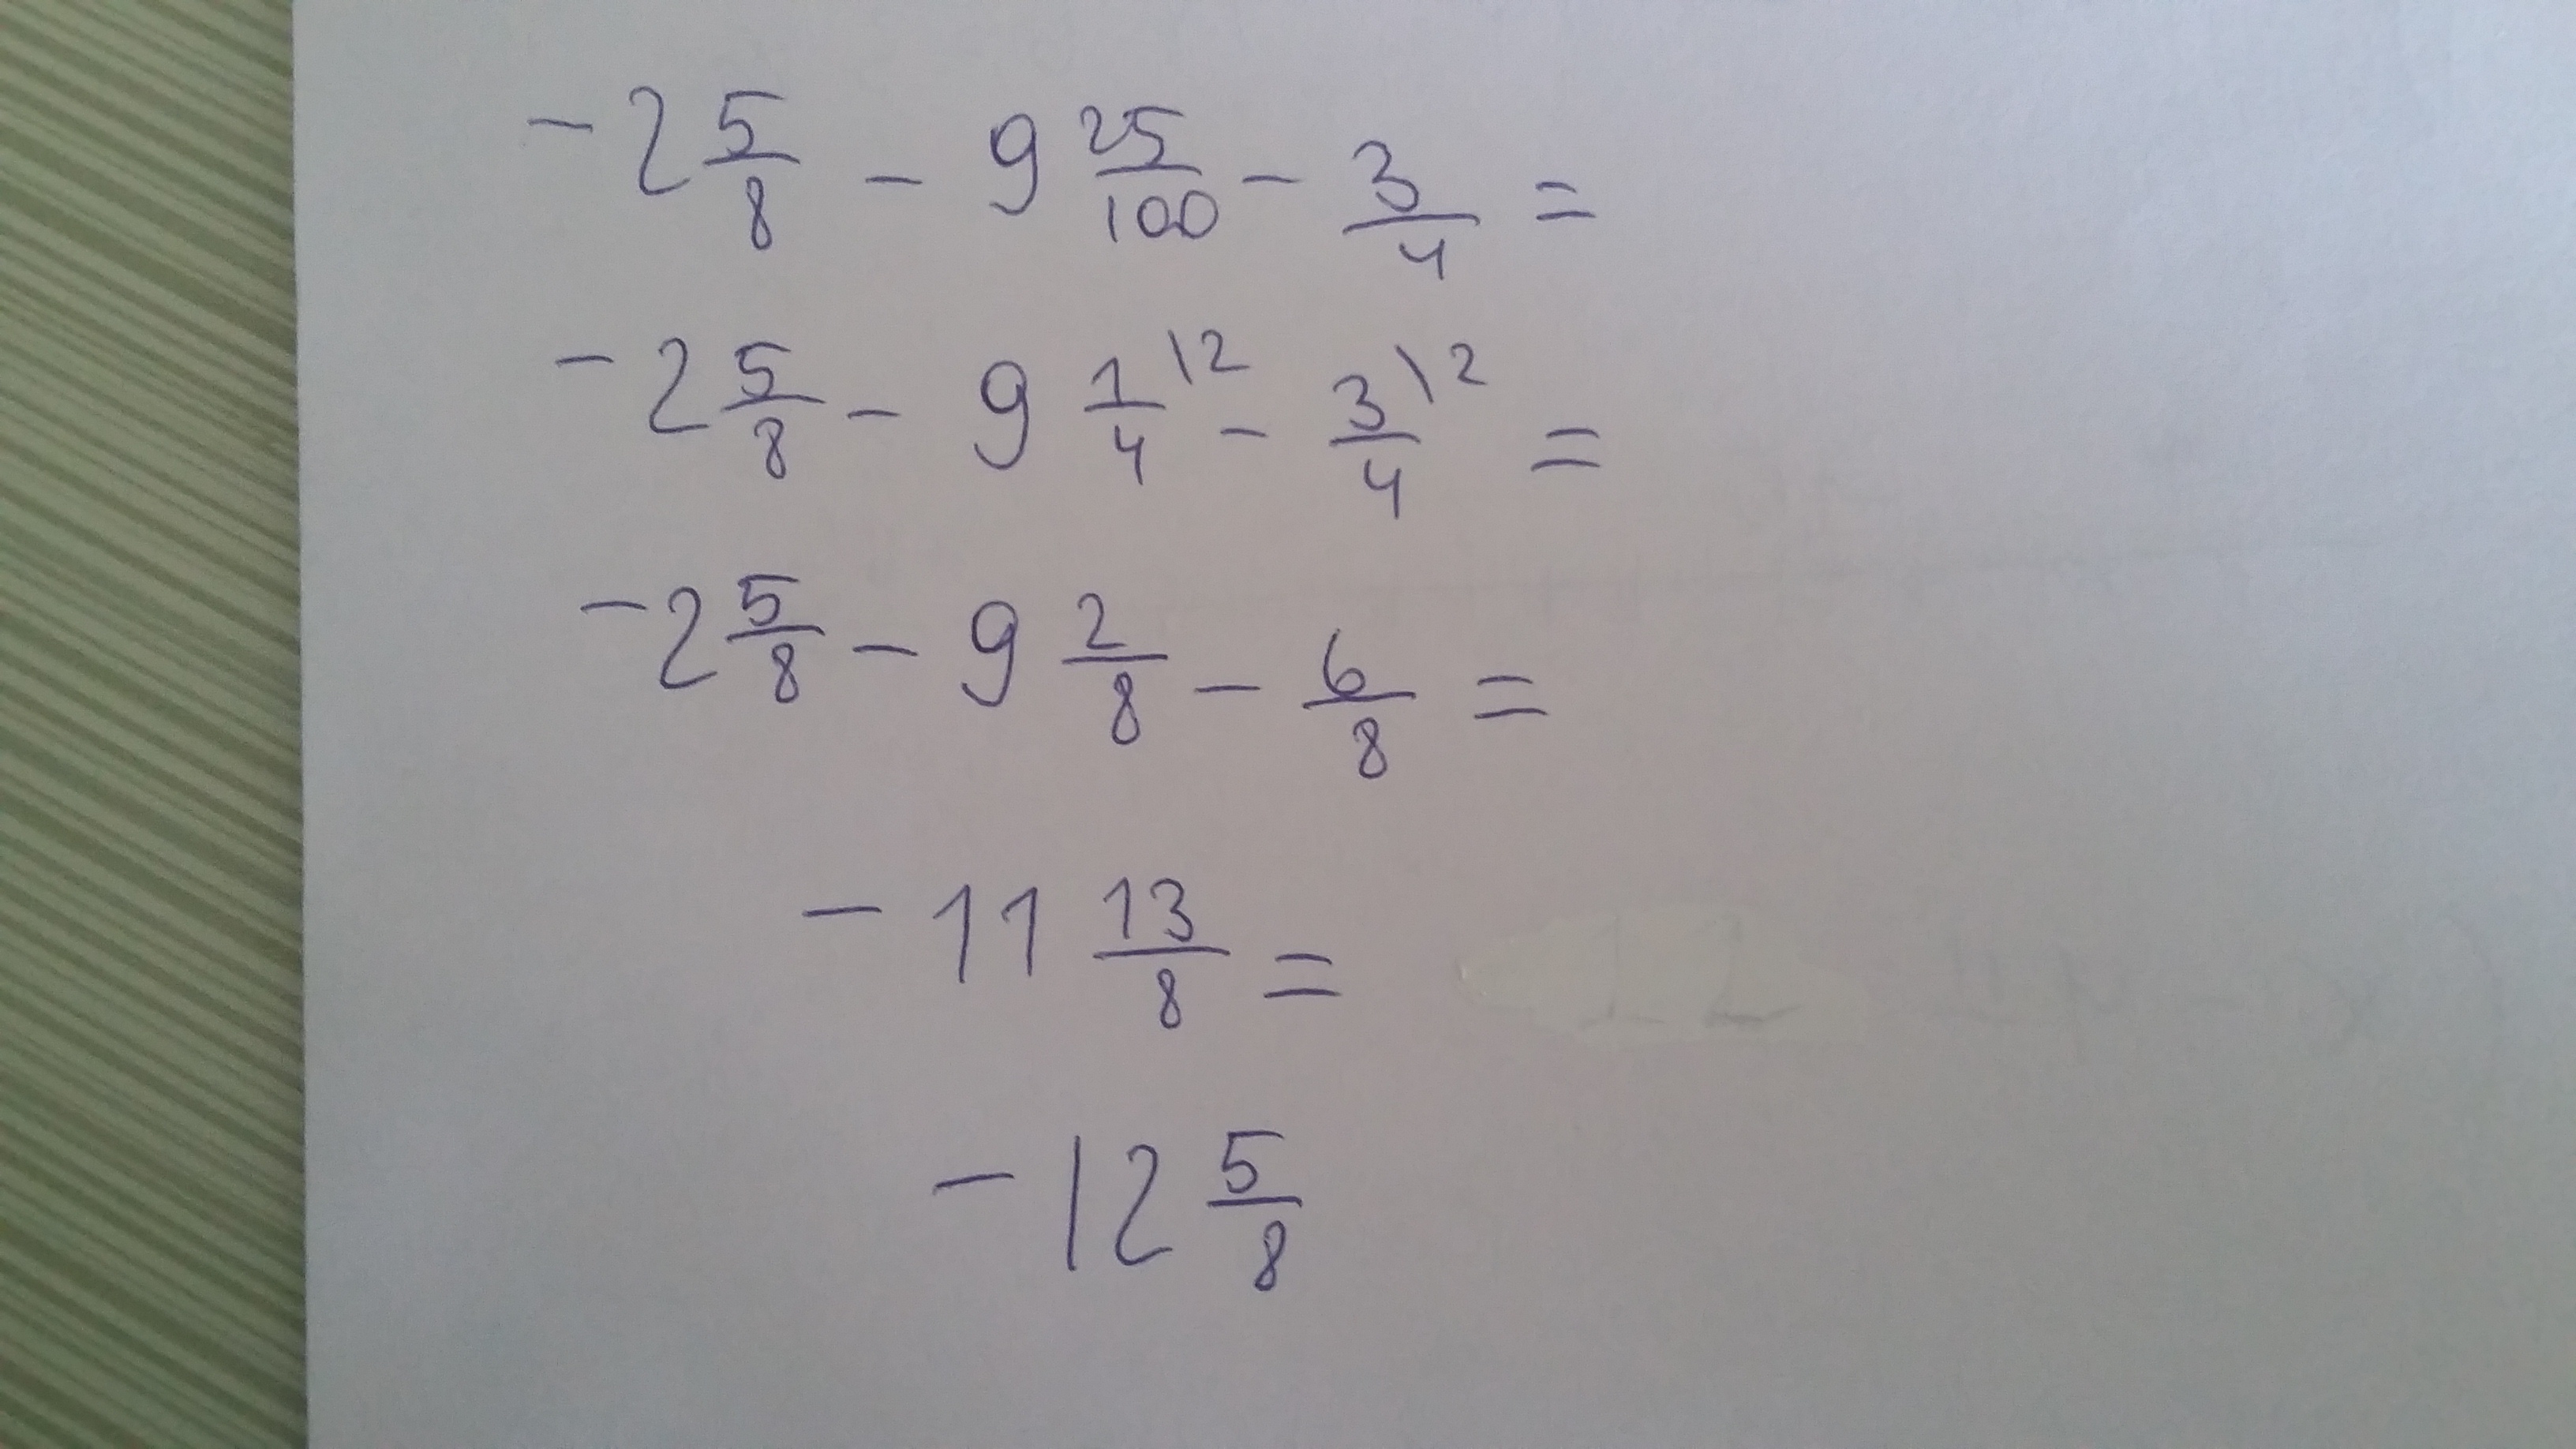 -2 5/8 - 9 25/100 - 3/4 =
-2 5/8 - 9 1/4 \2 - 3/4 \2 =
-2 5/8 - 9 2/8 - 6/8 =
- 11 13/8 =
- 12 5/8